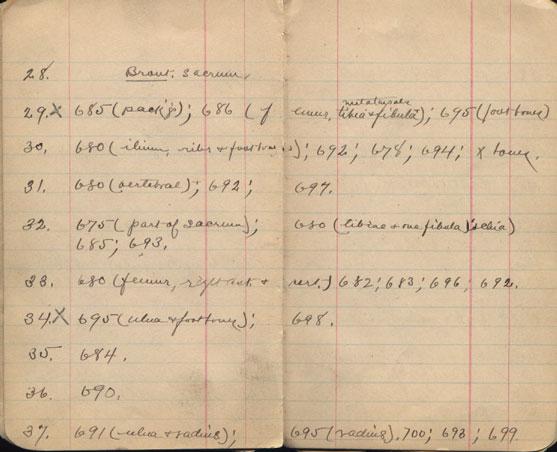 28. Bront. sacrum.
29. X 685 (pack'g); 686 (femur, metatarsals tibia & fibula); 695 (foot bones)
30. 680 (ilium, ribs & foot bones); 692; 678; 694; X bones.
31. 680 (vertebrae); 692; 697.
32. 675 (part of sacrum); 680 (tibiae & one fibula ischia)
685; 693.
33. 680 (femur, & vert.) 682; 683; 696; 692.
34. X 695 (ulna & foot bones); 698.
35. 684.
36. 690.
37. 691 (ulna & radius); 695 (radius). 700; 693; 699